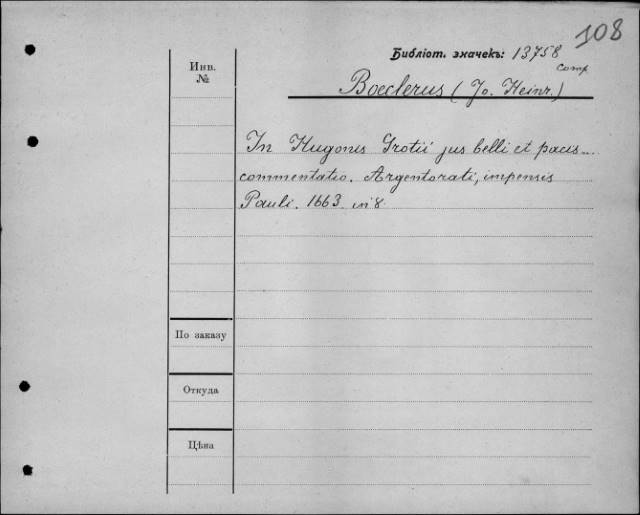 108
Библіот. значекъ: 13758
comp
Инв.
№
Boeclerus (Jo. Heinr.)
In Hugonis Grotii jus belli et pacis...
commentatio. Argentorati, impensis
Pauli. 1663 in 8.
По заказу
Откуда
Цѣна